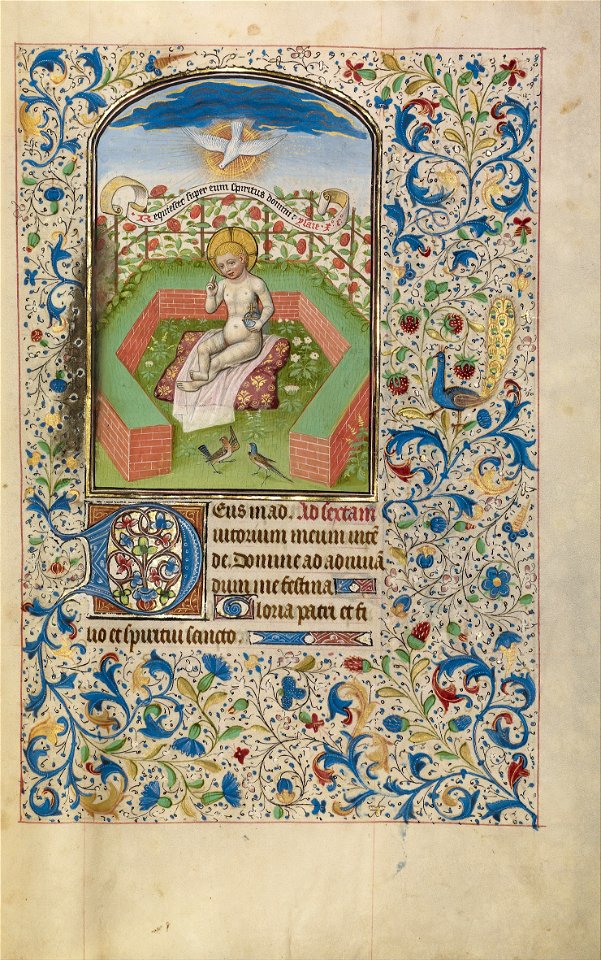 Requiescet super eum spiritus domini
DEus in ad. Ad sextam
iutorium meum intē
de. Domine ad adiuuā
dum me festina
Gloria patri et fi
lio et spiritui sancto.